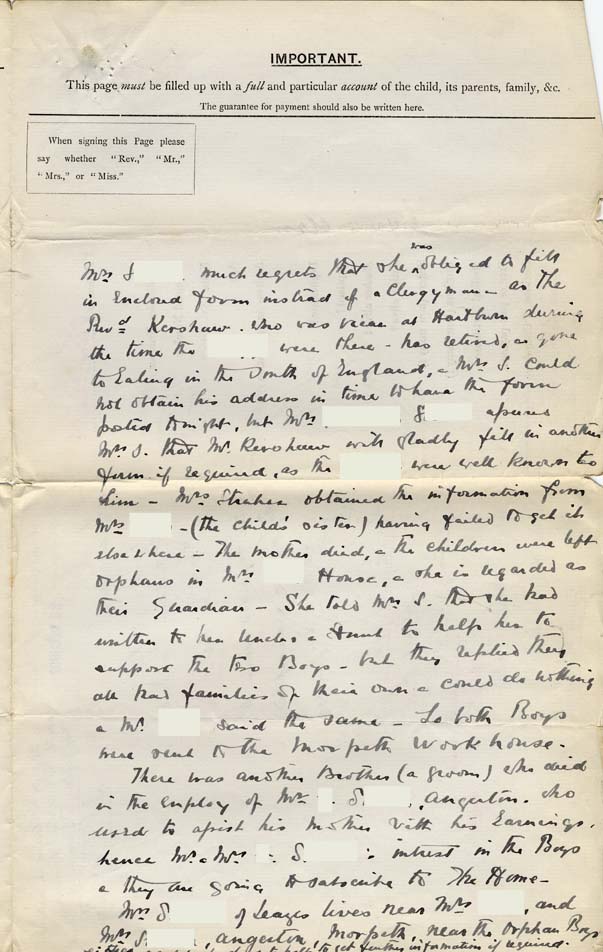 IMPORTANT.
This page must be filled up with a full and particular account of the child, its parents, family, &c.
The guarantee for payment should also be written here.
When signing this Page please
say whether "Rev.," "Mr.,"
"Mrs.," or "Miss."
Mrs S much regrets that she was obliged to fill
in Enclosed form instead of a Clergyman - as the
Revd Kershaw. who was vicar at Hartburn during
the time the were there - has retired, & gone
to Ealing in the South of England, & Mrs S. Could
not obtain his address in time to have the form
posted tonight, but Mrs. S assures
Mrs S. that Mr Kershaw will gladly fill in another
form if required, as the were well known to
him - Mrs Straker obtained the information from
Mrs - (the child's sister) having failed to get it
elsewhere - The mother died, & the children were left
orphans in Mrs House, & she is regarded as
their Guardian - She told Mrs S. that she had
written to her Uncles & Aunt to help her to
support the two Boys - but they replied they
all had families of their own & could do nothing
& Mr. said the same - So both Boys
were sent to the Morpeth Workhouse.
There was another Brother (a groom) who died
in the employ of Mr S , Angerton. who
used to assist his mother with his Earnings.
hence Mr & Mrs S. interest in the Boys
& they are going to subscribe to The Home -
Mrs S of Leazes lives near Mrs , and
Mrs S , Angerton, Morpeth, near the Orphan Boys
to get further information if required.